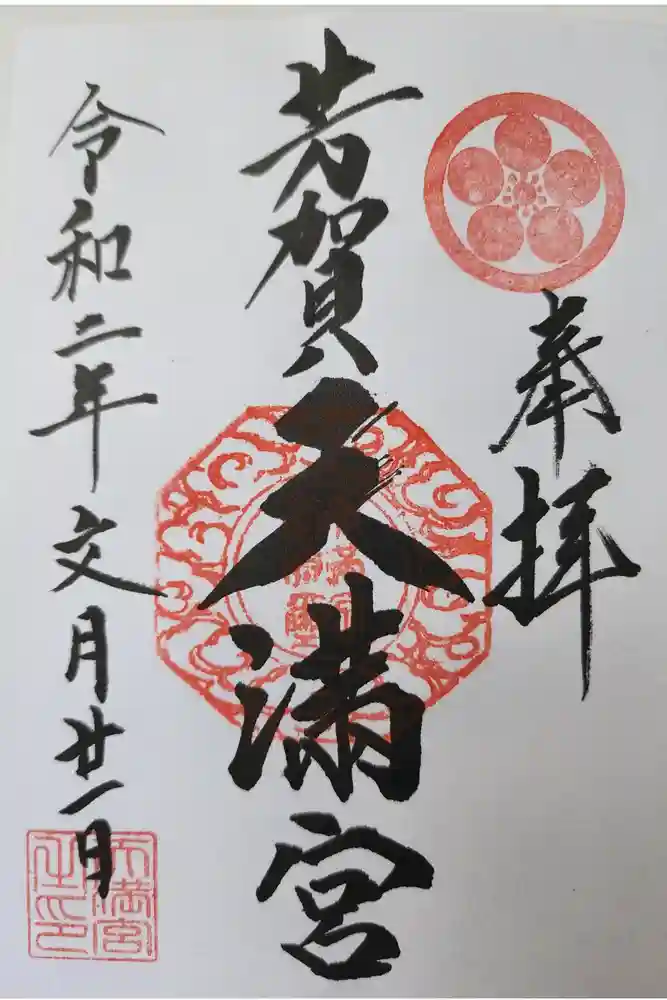 奉拝
芳賀天満宮
令和二年文月廿一日
天満宮